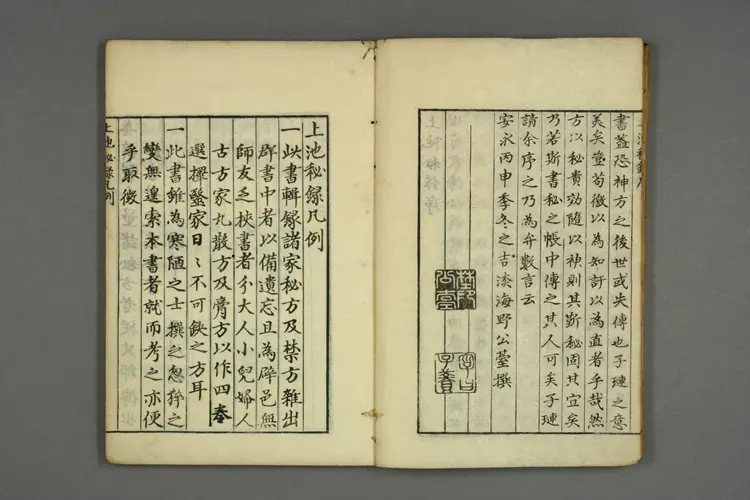 書蓋恐神方之後世或失傳也子璉之意
美矣豈苟徼以為知訐以為直者乎哉然
方以秘貴効隨以神則其斯秘固其宜矣
乃若斯書秘之帳中傳之其人可矣子璉
請余序之乃為弁數言云
安永丙申季冬之吉淡海野公臺撰
上池秘録凡例
一此書輯録諸家秘方及禁方雜出
群書中者以備遺忘且為辟邑無
師友乏挾書者分大人小兒婦人
古方家丸散方及膏方以作四卷
選擇醫家日〻不可缺之方耳
一此書雖為寒陋之士撰之怱猝之
變無遑索本書者就而考之亦便
乎取徴
上池秘録凡例